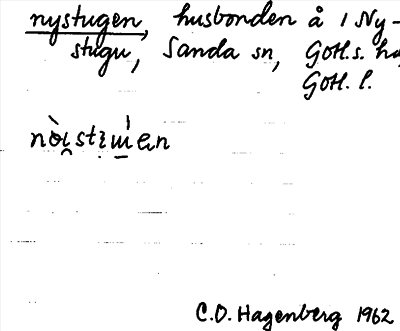 nystugen, husbonden å 1 Ny-
stugu, Sanda sn, Gotl. s. ha
Gotl. l.
C.O. Hagenberg 1962